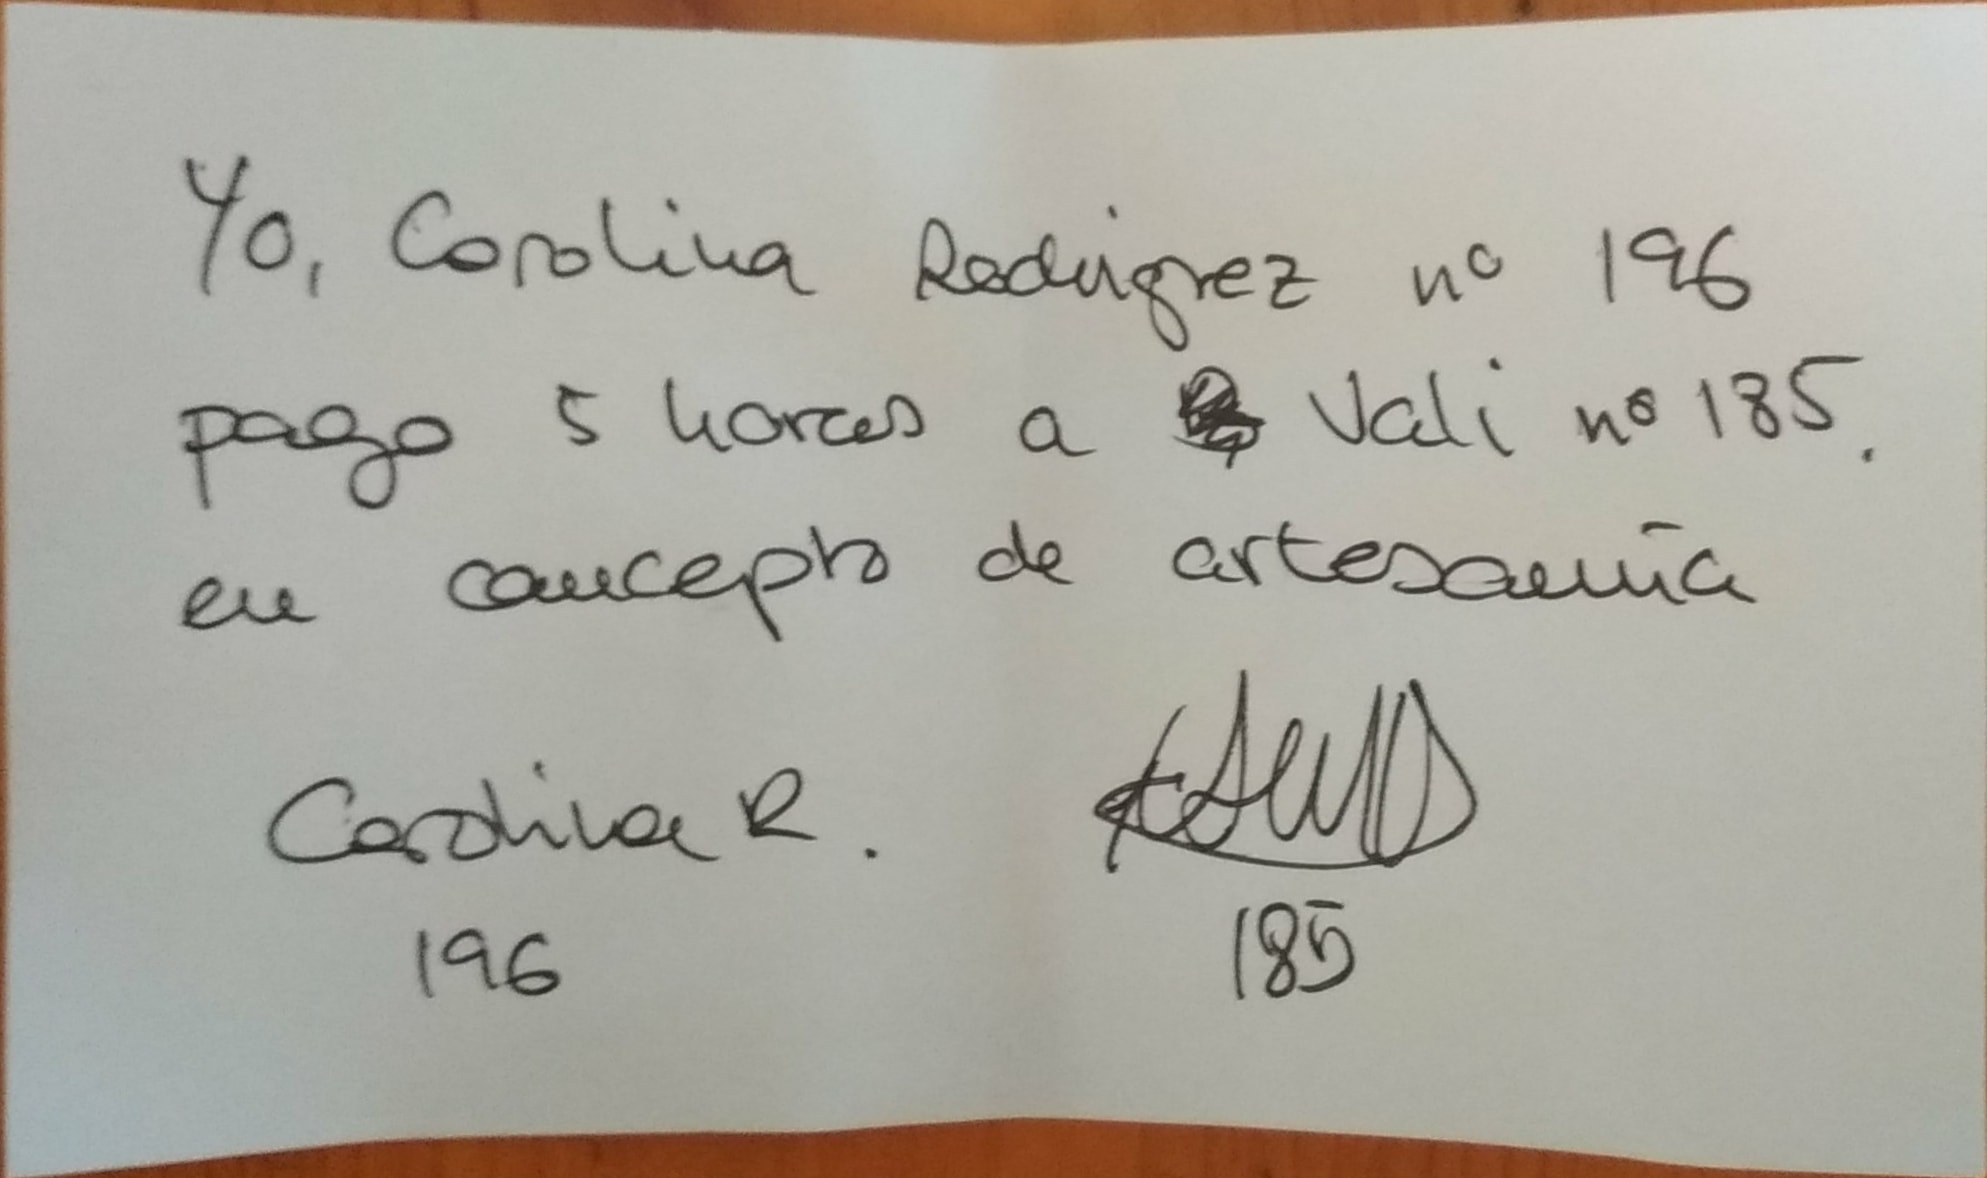 Yo, Carolina Rodriguez nº 196
pago 5 horas a Vali nº 185.
en concepto de artesanía
Carolina R.
196
185